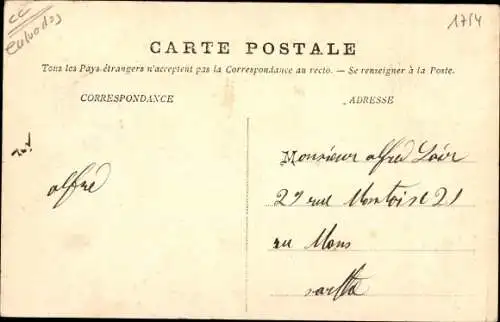 CC
Calvados
1754
CARTE POSTALE
Tous les Pays étrangers n'acceptent pas la Correspondance au recto. — Se renseigner à la Poste.
CORRESPONDANCE
ADRESSE
alfred
Monsieur alfred Loir
27 rue Montoise 21
au Mans
sarthe